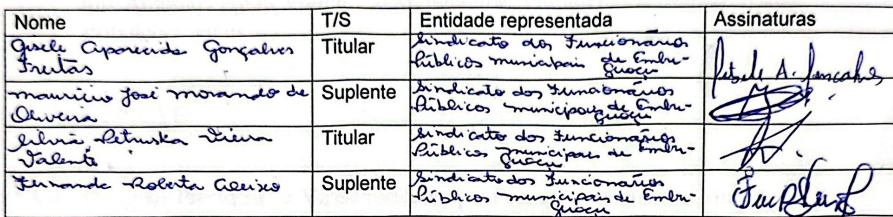 Nome T/S Entidade representada Assinaturas
Gisele Aparecida Gonçalves Titular Sindicato dos Funcionários
Freitas Públicos municipais de Embu-
Guaçu Gisele A. Gonçalves
maurício José morando de Suplente Sindicato dos Funcionários
Oliveira Públicos municipais de Embu-
Guaçu
Silvia Petruska Vieira Titular Sindicato dos Funcionários
Valenti Públicos municipais de Embu-
Guaçu
Fernanda Roberta Aleixo Suplente Sindicato dos Funcionários
Públicos municipais de Embu-
Guaçu